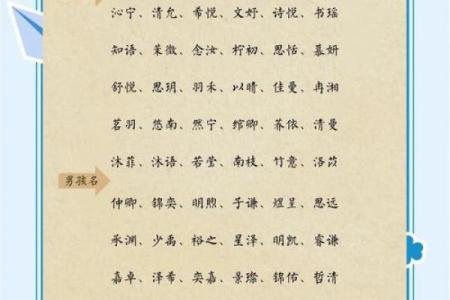 沁宁、清允、希悦、文妤、诗悦、书瑶
知语、茉微、念汝、柠初、思恬、慕妍
舒悦、思玥、羽禾、以晴、佳曼、冉湘
茗羽、悠南、然宁、绾卿、荞依、清曼
沐菲、沐语、若莹、南枝、竹意、洛苡
男孩名
仲卿、锦奕、明煦、子谦、煜呈、思远
承渊、少禹、裕之、星泽、明凯、睿谦
嘉卓、泽希、奕嘉、景璨、锦佑、哲清